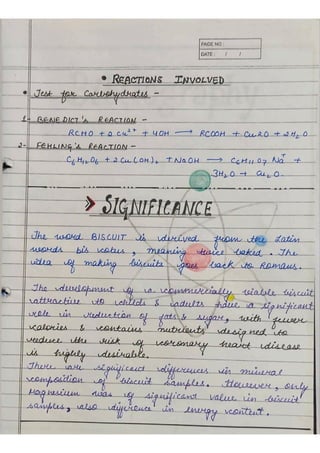 PAGE NO :
DATE : / /
• REACTIONS INVOLVED
• Test for Carbohydrates -
1- BENEDICT's REACTION -
RCHO + 2 Cu²⁺ + 4OH → RCOOH + Cu2O + 2H2O
2- FEHLING's REACTION -
C6H12O6 + 2 Cu(OH)2 + NaOH → C6H11O7 Na⁺ +
3H2O + Cu2O.
➤ SIGNIFICANCE
The word BISCUIT is derived from the Latin
words bis cotus, meaning twice baked. The
idea of making biscuits goes back to Romans.
The development of a commercially viable biscuit
attractive to childs & adults have a significant
role in reduction of fats & sugar, with fewer
calories & contains nutrients designed to
reduce the risk of coronary heart disease
is highly desirable.
There are significant differences in mineral
composition of biscuit samples. However, only
Magnesium was of significant value in biscuit
samples, also difference in energy content.